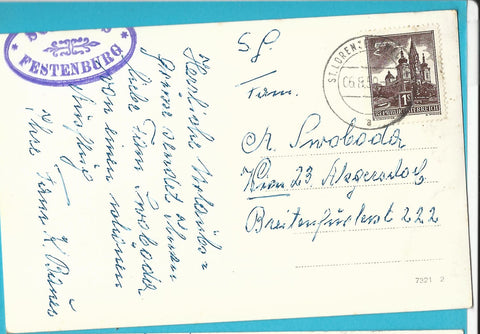 FESTENBURG
Herzliche Urlaubs=
Grüsse sendet Ihnen
liebe Fam. Swoboda
von einem schönen
Ausflug
Ihre Fam.
S. g.
Fam.
A. Swoboda
Wien 23. Atzgersdorf
Breitenfurterst 222
ST. LOREN
a
1 S
REPUBLIK ÖSTERREICH
7321 2